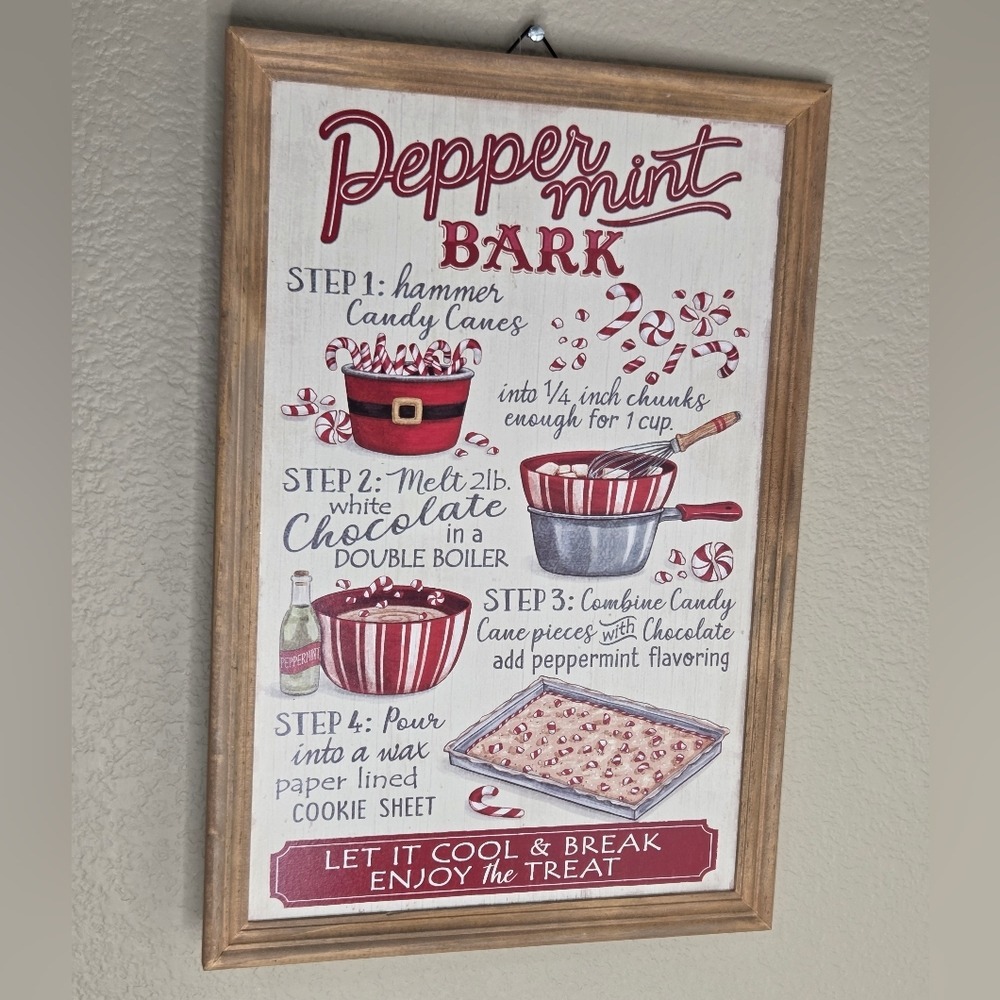 Peppermint
BARK
STEP 1: hammer
Candy Canes
into 1/4 inch chunks
enough for 1 cup.
STEP 2: Melt 2lb.
white
Chocolate
in a
DOUBLE BOILER
PEPPERMINT
STEP 3: Combine Candy
Cane pieces with Chocolate
add peppermint flavoring
STEP 4: Pour
into a wax
paper lined
COOKIE SHEET
LET IT COOL & BREAK
ENJOY the TREAT